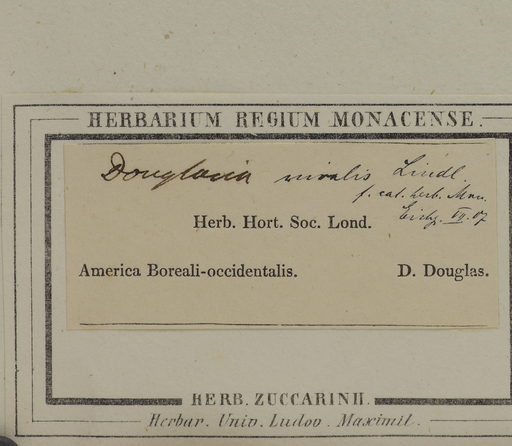 HERBARIUM REGIUM MONACENSE.
Douglasia nivalis Lindl.
f. cat. herb. Mon.
VII. 07
Herb. Hort. Soc. Lond.
America Boreali-occidentalis. D. Douglas.
HERB. ZUCCARINII.
Herbar. Univ. Ludov. Maximil.